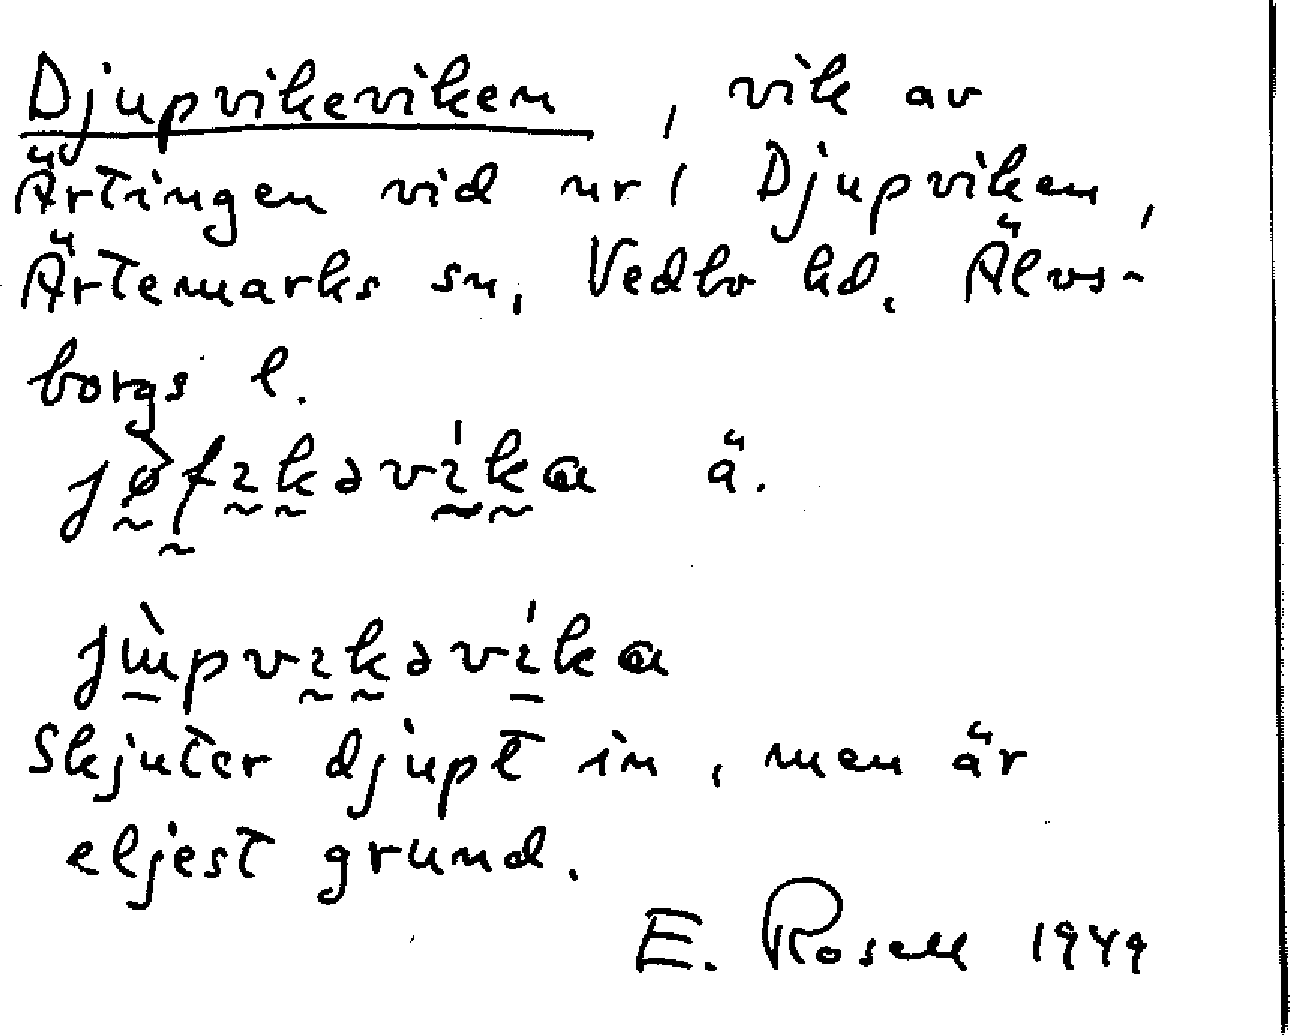 Djupvikeviken, vik av
Ärtingen vid nr 1 Djupviken,
Ärtemarks sn, Vedbo hd. Älvs-
borgs l.
jø̀fıkəvı́ka ä.
jùpvıkəvı́ka
Skjuter djupt in, men är
eljest grund.
E. Rosell 1949